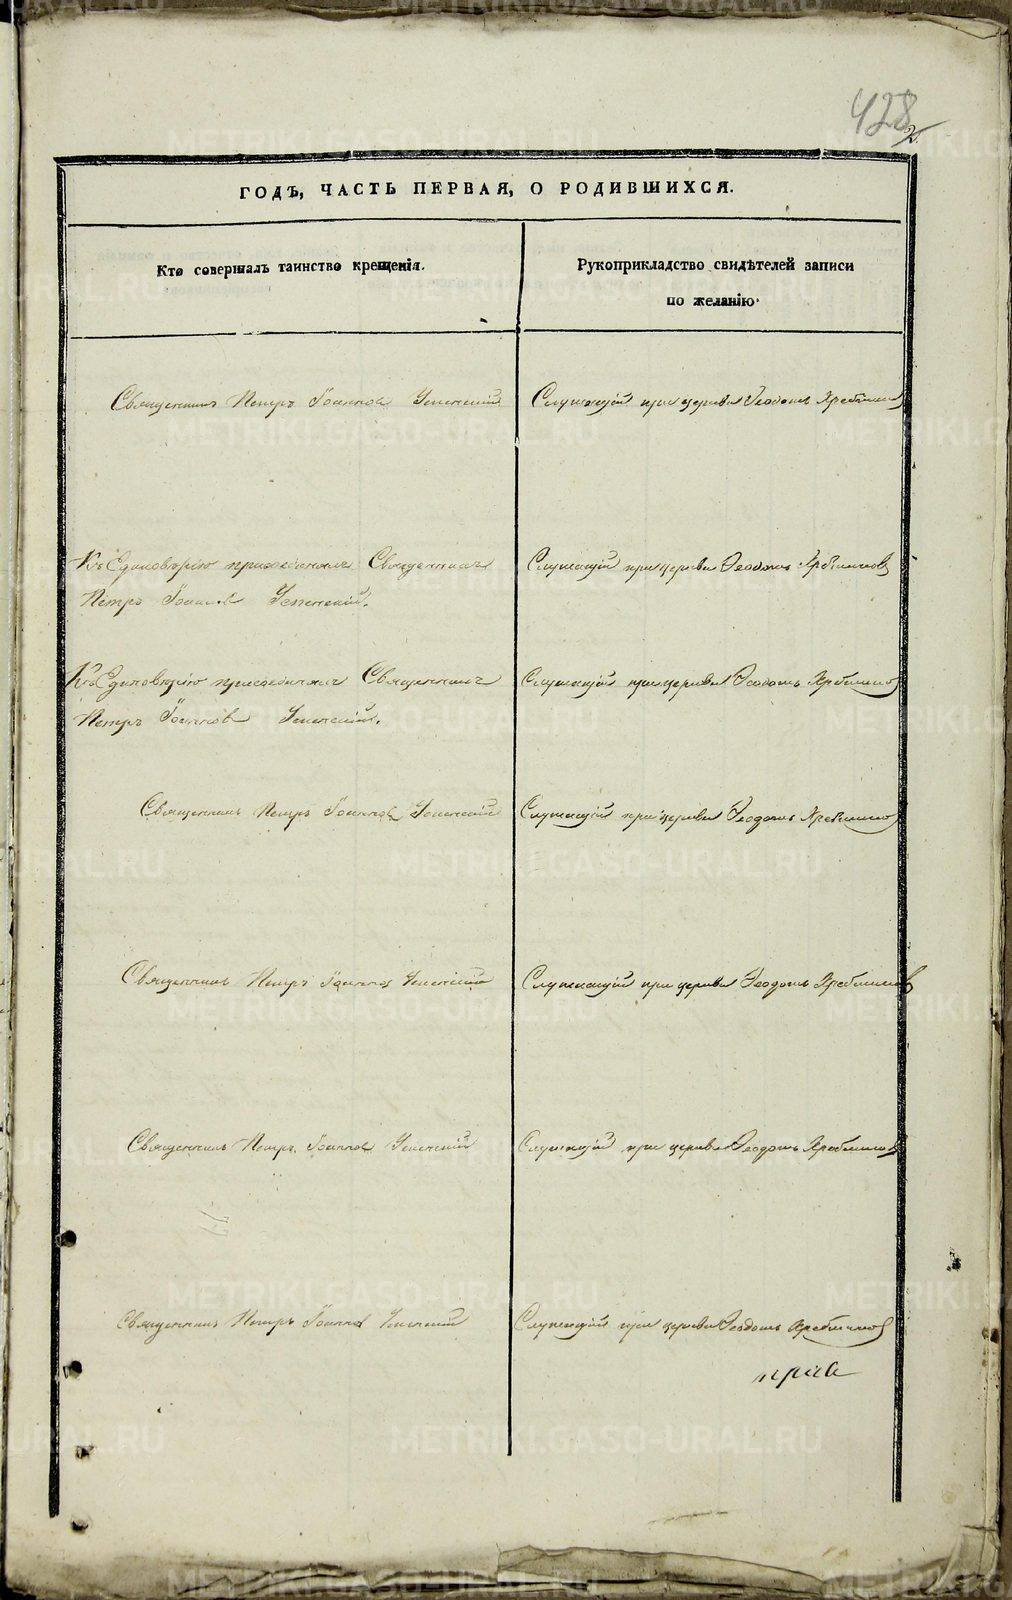 428
ГОДЪ, ЧАСТЬ ПЕРВАЯ, О РОДИВШИХСЯ.
Кто совершалъ таинство крещенія.
Рукоприкладство свидѣтелей записи
по желанію.
Священникъ Петръ Іоанновъ Успенскій
Служащій при церкви Ѳеодотъ
Къ Единовѣрію присоединилъ Священникъ
Петръ Іоанновъ Успенскій.
Служащій при церкви Ѳеодотъ
Къ Единовѣрію присоединилъ Священникъ
Петръ Іоанновъ Успенскій.
Служащій при церкви Ѳеодотъ
Священникъ Петръ Іоанновъ Успенскій
Служащій при церкви Ѳеодотъ
Священникъ Петръ Іоанновъ Успенскій
Служащій при церкви Ѳеодотъ
Священникъ Петръ Іоанновъ Успенскій
Служащій при церкви Ѳеодотъ
Священникъ Петръ Іоанновъ Успенскій
Служащій при церкви Ѳеодотъ
METRIKI.GASO-URAL.RU